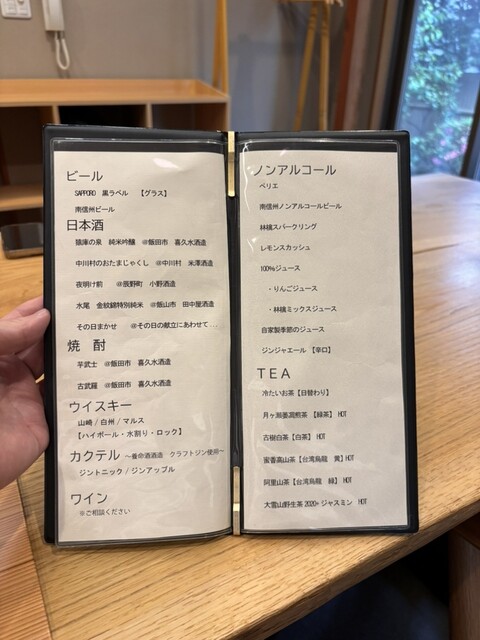 ビール
SAPPORO 黒ラベル 【グラス】
南信州ビール
日本酒
猿庫の泉 純米吟醸 @飯田市 喜久水酒造
中川村のおたまじゃくし @中川村 米澤酒造
夜明け前 @辰野町 小野酒造
水尾 金紋錦特別純米 @飯山市 田中屋酒造
その日まかせ @その日の献立にあわせて...
焼 酎
芋武士 @飯田市 喜久水酒造
古武羅 @飯田市 喜久水酒造
ウイスキー
山崎 / 白州 / マルス
【ハイボール・水割り・ロック】
カクテル ～養命酒酒造 クラフトジン使用～
ジントニック / ジンアップル
ワイン
※ご相談ください
ノンアルコール
ペリエ
南信州ノンアルコールビール
林檎スパークリング
レモンスカッシュ
100%ジュース
・りんごジュース
・林檎ミックスジュース
自家製季節のジュース
ジンジャエール 【辛口】
TEA
冷たいお茶【日替わり】
月ヶ瀬萎凋煎茶 【緑茶】 HOT
古樹白茶【白茶】 HOT
蜜香高山茶【台湾烏龍 黄】HOT
阿里山茶【台湾烏龍 緑】 HOT
大雪山野生茶2020+ジャスミン HOT